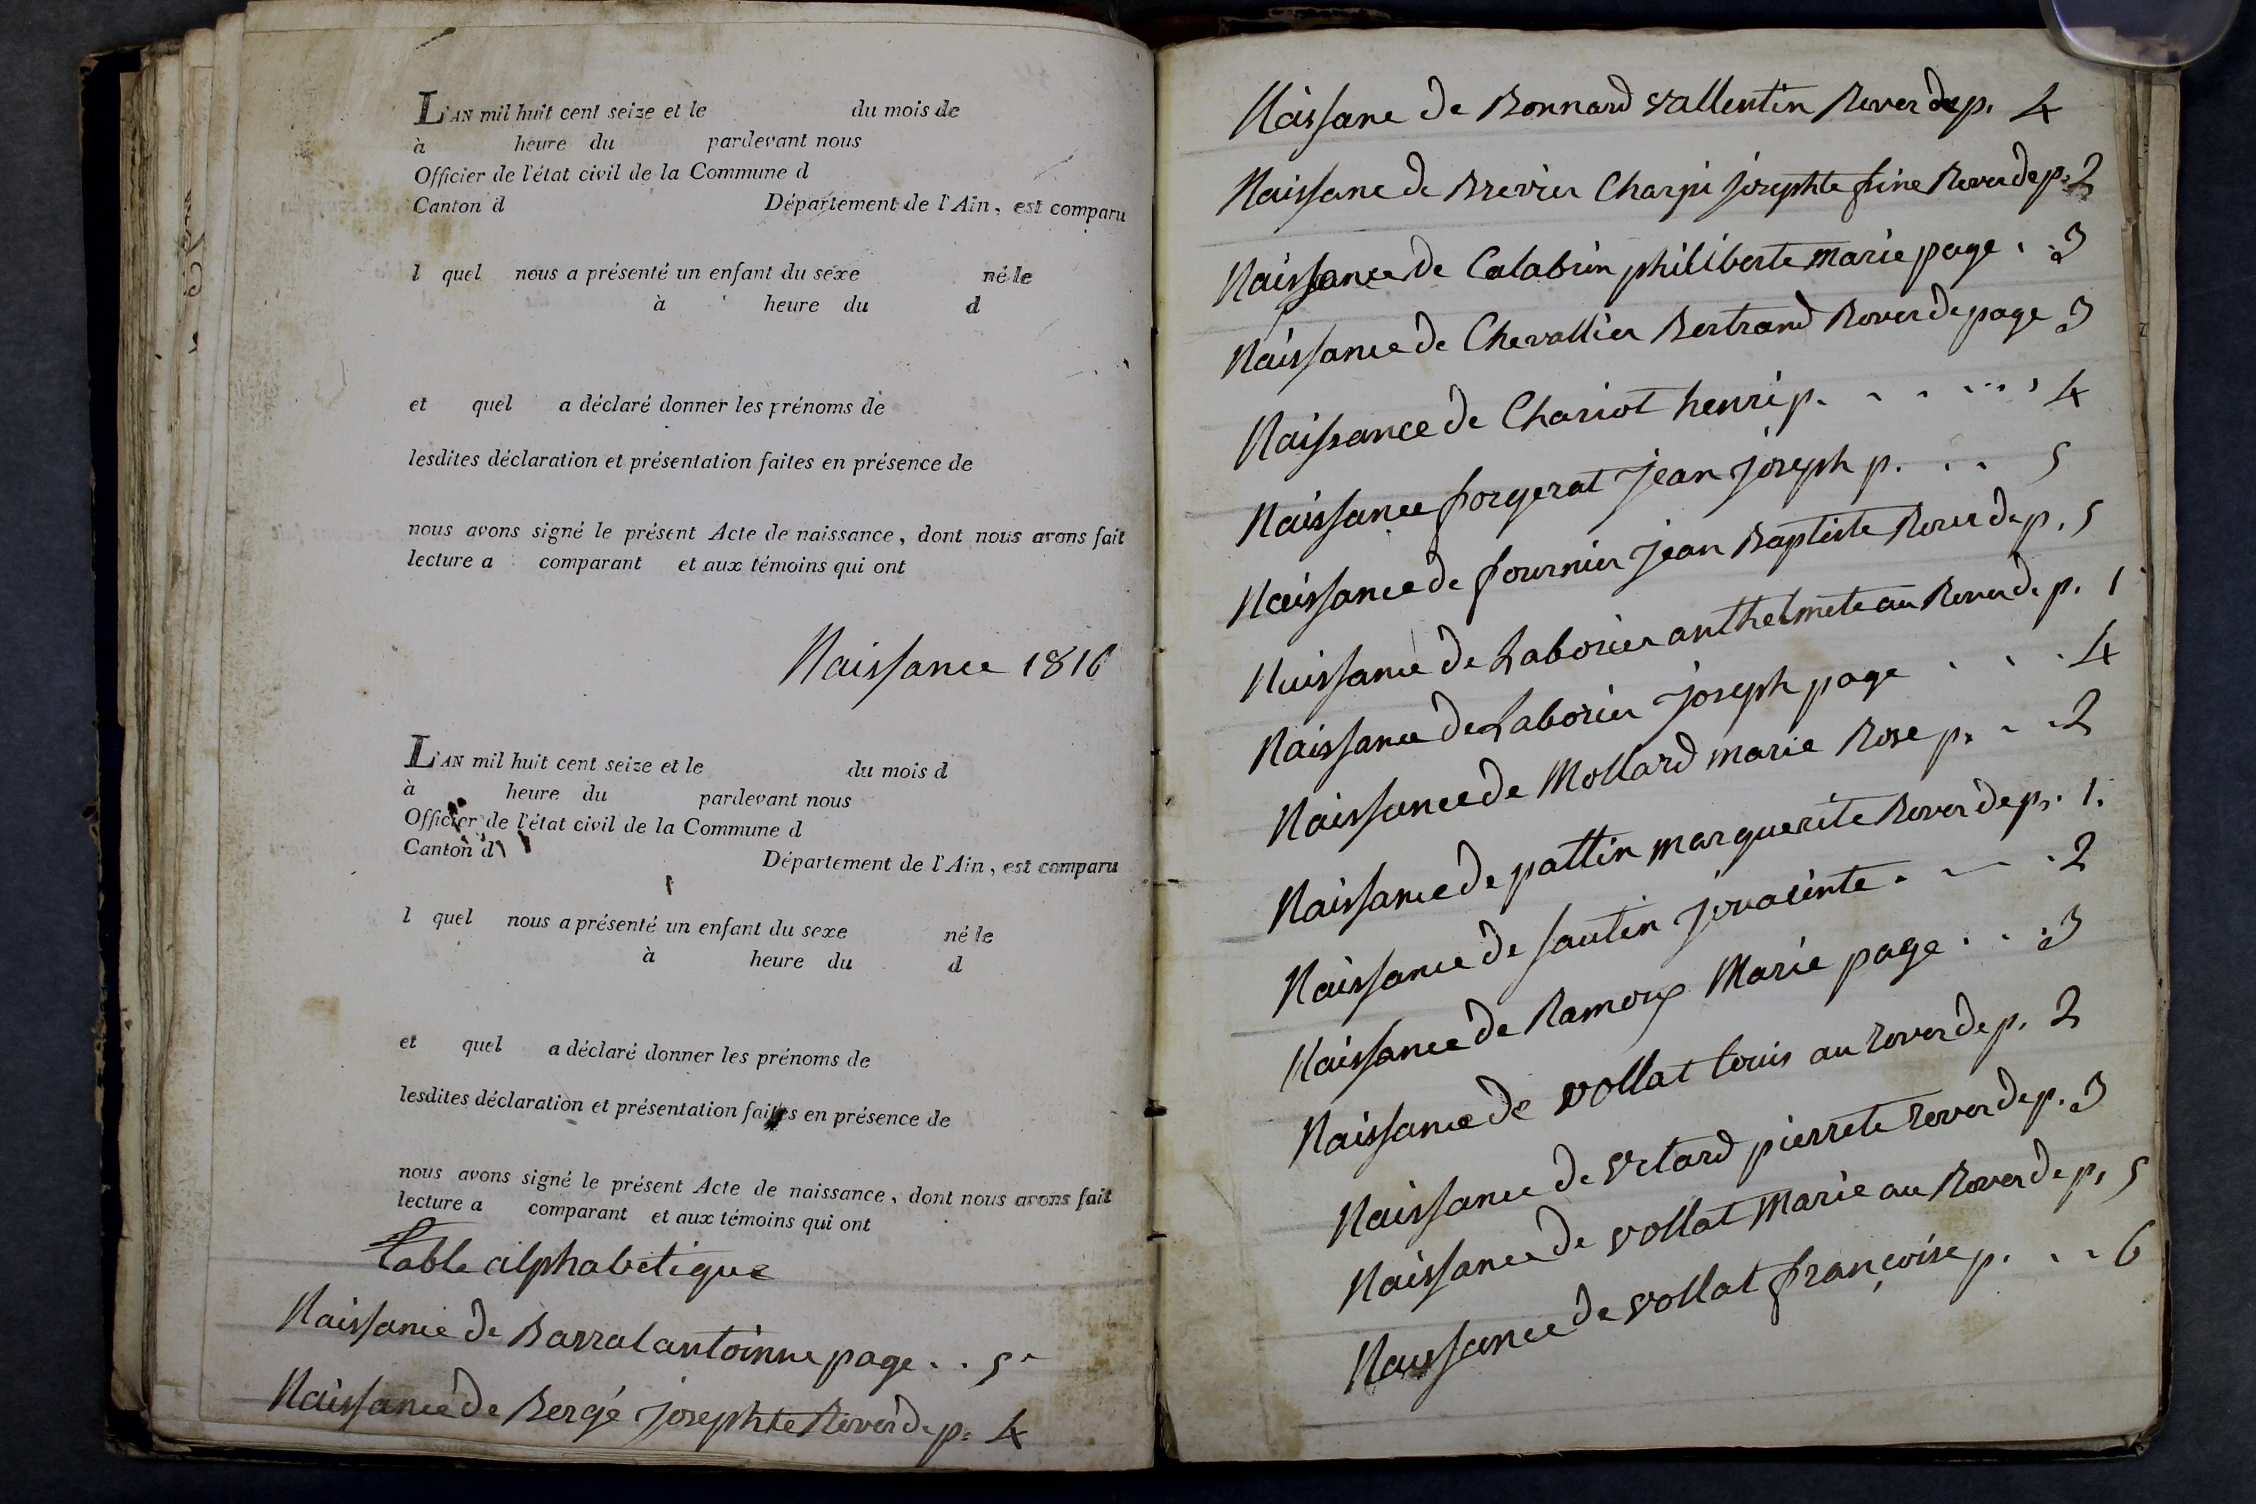 L'AN mil huit cent seize et le du mois de
à heure du pardevant nous
Officier de l'état civil de la Commune d
Canton d Département de l'Ain, est comparu
l quel nous a présenté un enfant du sexe né le
à heure du d
et quel a déclaré donner les prénoms de
lesdites déclaration et présentation faites en présence de
nous avons signé le présent Acte de naissance, dont nous avons fait
lecture a comparant et aux témoins qui ont
Naissance 1816
L'AN mil huit cent seize et le du mois d
à heure du pardevant nous
Officier de l'état civil de la Commune d
Canton d Département de l'Ain, est comparu
l quel nous a présenté un enfant du sexe né le
à heure du d
et quel a déclaré donner les prénoms de
lesdites déclaration et présentation faites en présence de
nous avons signé le présent Acte de naissance, dont nous avons fait
lecture a comparant et aux témoins qui ont
table alphabetique
Naissance de Barral antoinne page . . 5
Naissance de Bergé josephte Rever de p. 4
Naissane de Bonnard vallentin Rever de p. 4
Naissane de Brevier Charpi josephte fine Rever de p. 2
Naissance de Calabrin philiberte marie page . . 3
Naissance de Chevallier Bertrand Rever de page 3
Naissance de Chariot henri p. . . . . . . 4
Naissance forgerat jean joseph p. . . 5
Naissance de fournier jean Baptiste Rever de p. 5
Naissance de Laborier anthelmete au Rever de p. 1
Naissance de Laborier joseph page . . . 4
Naissance de Mollard marie Rose p. . . 2
Naissance de pattin marguerite Rever de p. 1.
Naissance de sautin . . . 2
Naissance de Ramoux Marie page . . . 3
Naissance de vollat louis au rever de p. 2
Naissance de Vitard pierrete rever de p. 3
Naissance de vollat Marie au Rever de p. 5
Naissance de vollat françoise p. . . 6